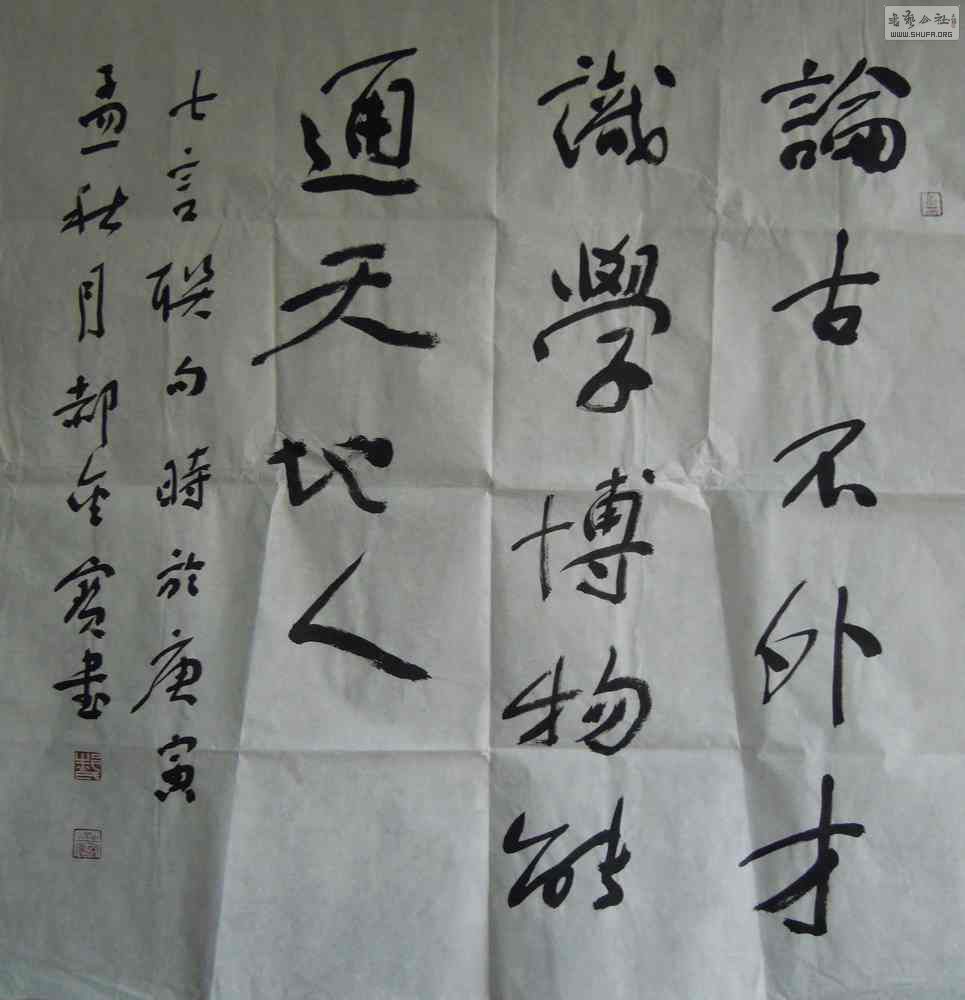 論古不外才
識學博物能
通天地人
七言聯句時於庚寅
孟秋月郝金寶書
書藝公社
WWW.SHUFA.ORG